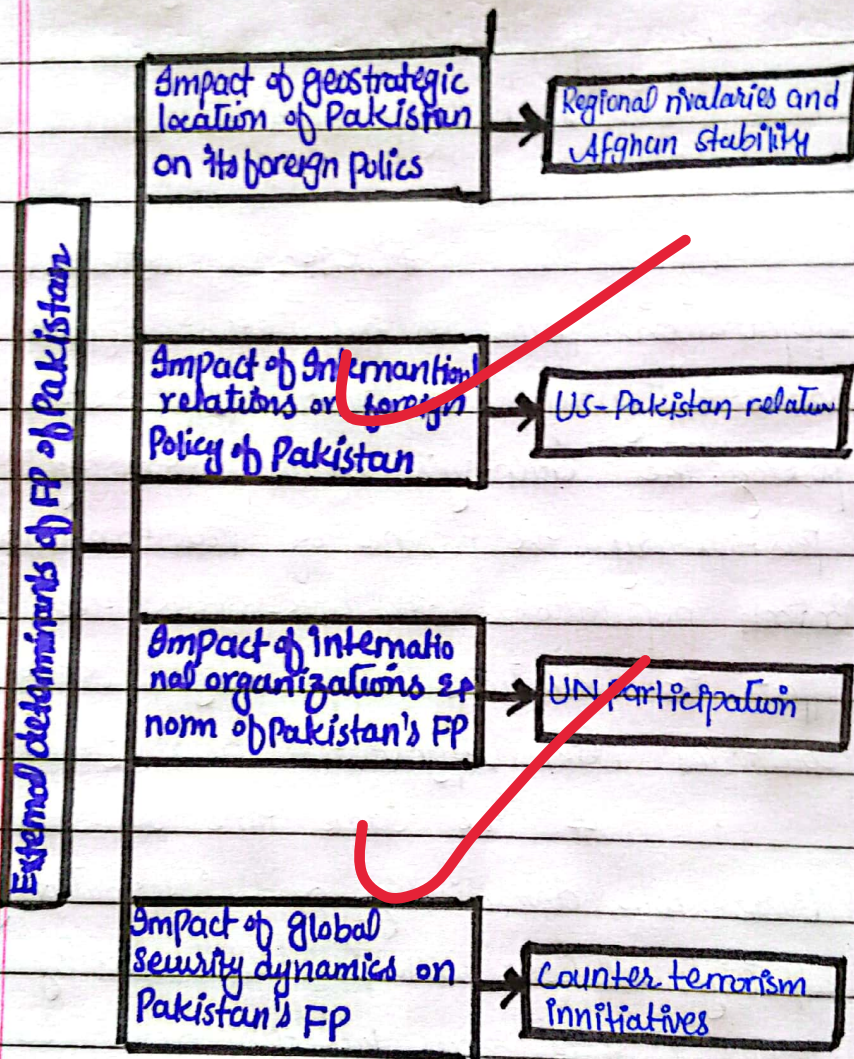 External determinants of FP of Pakistan
Impact of geostrategic
location of Pakistan
on its foreign polics
Regional rivalaries and
Afghan stability
Impact of Internantional
relations on foreign
Policy of Pakistan
US-Pakistan relation
Impact of internatio
nal organizations &
norm of Pakistan's FP
UN Participation
Impact of global
security dynamics on
Pakistan's FP
Counter terrorism
innitiatives